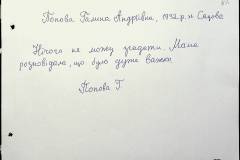 Попова Галина Андріївна, 1932 р. н.
Нічого не можу згадати. Мама
розповідала, що було дуже важко
Попова Г.